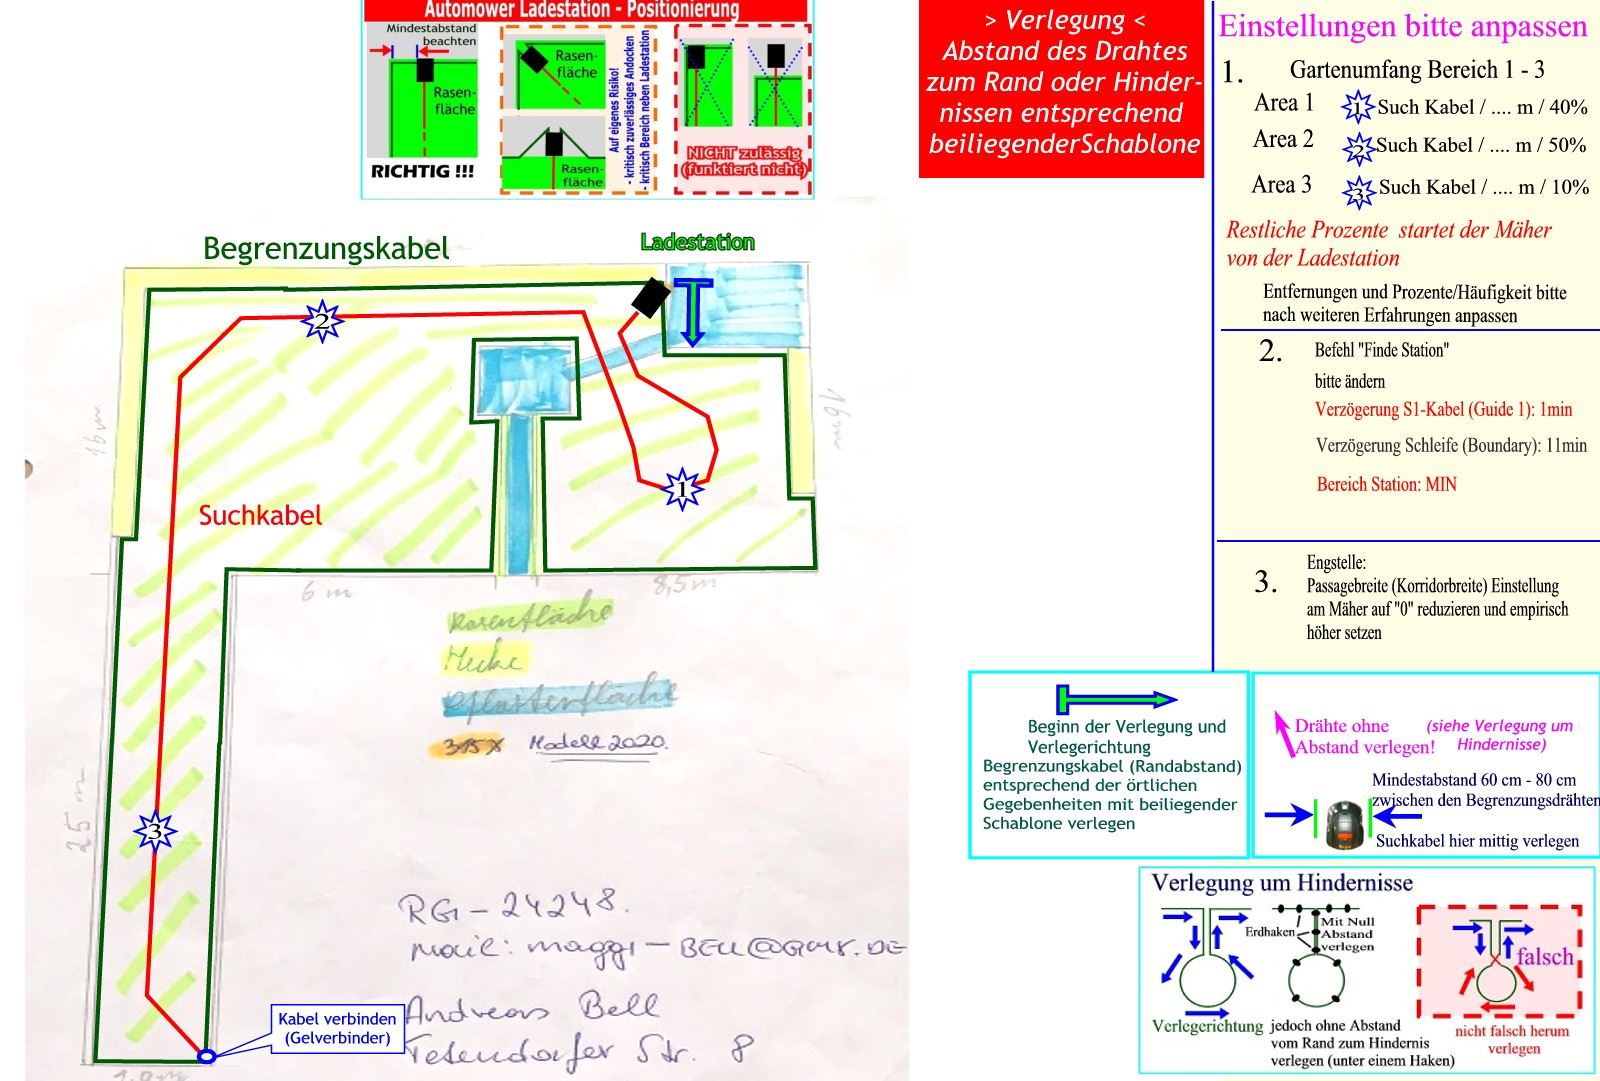 Automower Ladestation - Positionierung
Mindestabstand
beachten
Rasen-
fläche
RICHTIG !!!
Rasen-
fläche
Rasen-
fläche
Auf eigenes Risiko!
- kritisch zuverlässiges Andocken
- kritisch Bereich neben Ladestation
NICHT zulässig
(funktiert nicht)
> Verlegung <
Abstand des Drahtes
zum Rand oder Hinder-
nissen entsprechend
beiliegenderSchablone
Einstellungen bitte anpassen
1. Gartenumfang Bereich 1 - 3
Area 1 1 Such Kabel / .... m / 40%
Area 2 2 Such Kabel / .... m / 50%
Area 3 3 Such Kabel / .... m / 10%
Restliche Prozente startet der Mäher
von der Ladestation
Entfernungen und Prozente/Häufigkeit bitte
nach weiteren Erfahrungen anpassen
2. Befehl "Finde Station"
bitte ändern
Verzögerung S1-Kabel (Guide 1): 1min
Verzögerung Schleife (Boundary): 11min
Bereich Station: MIN
3. Engstelle:
Passagebreite (Korridorbreite) Einstellung
am Mäher auf "0" reduzieren und empirisch
höher setzen
Begrenzungskabel
Ladestation
2
16m
16m
1
Suchkabel
6 m
8,5m
Rasenfläche
Hecke
Pflasterfläche
315X Modell 2020.
3
25 m
RG-24248.
Mail: maggi-BELL@GMX.DE
Andreas Bell
Tesendorfer Str. 8
Kabel verbinden
(Gelverbinder)
Beginn der Verlegung und
Verlegerichtung
Begrenzungskabel (Randabstand)
entsprechend der örtlichen
Gegebenheiten mit beiliegender
Schablone verlegen
Drähte ohne
Abstand verlegen!
(siehe Verlegung um
Hindernisse)
Mindestabstand 60 cm - 80 cm
zwischen den Begrenzungsdrähten
Suchkabel hier mittig verlegen
Verlegung um Hindernisse
Erdhaken
Mit Null
Abstand
verlegen
falsch
Verlegerichtung
jedoch ohne Abstand
vom Rand zum Hindernis
verlegen (unter einem Haken)
nicht falsch herum
verlegen